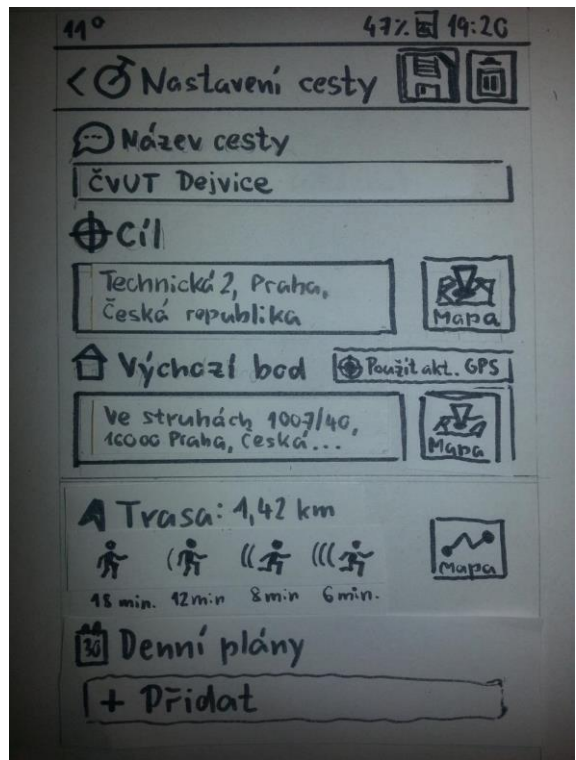 11° 47% 19:20
< Nastavení cesty
Název cesty
ČVUT Dejvice
Cíl
Technická 2, Praha,
Česká republika
Mapa
Výchozí bod
Použít akt. GPS
Ve struhách 1007/40,
16000 Praha, Česká...
Mapa
Trasa: 1,42 km
18 min. 12min 8min 6min.
Mapa
30 Denní plány
+ Přidat